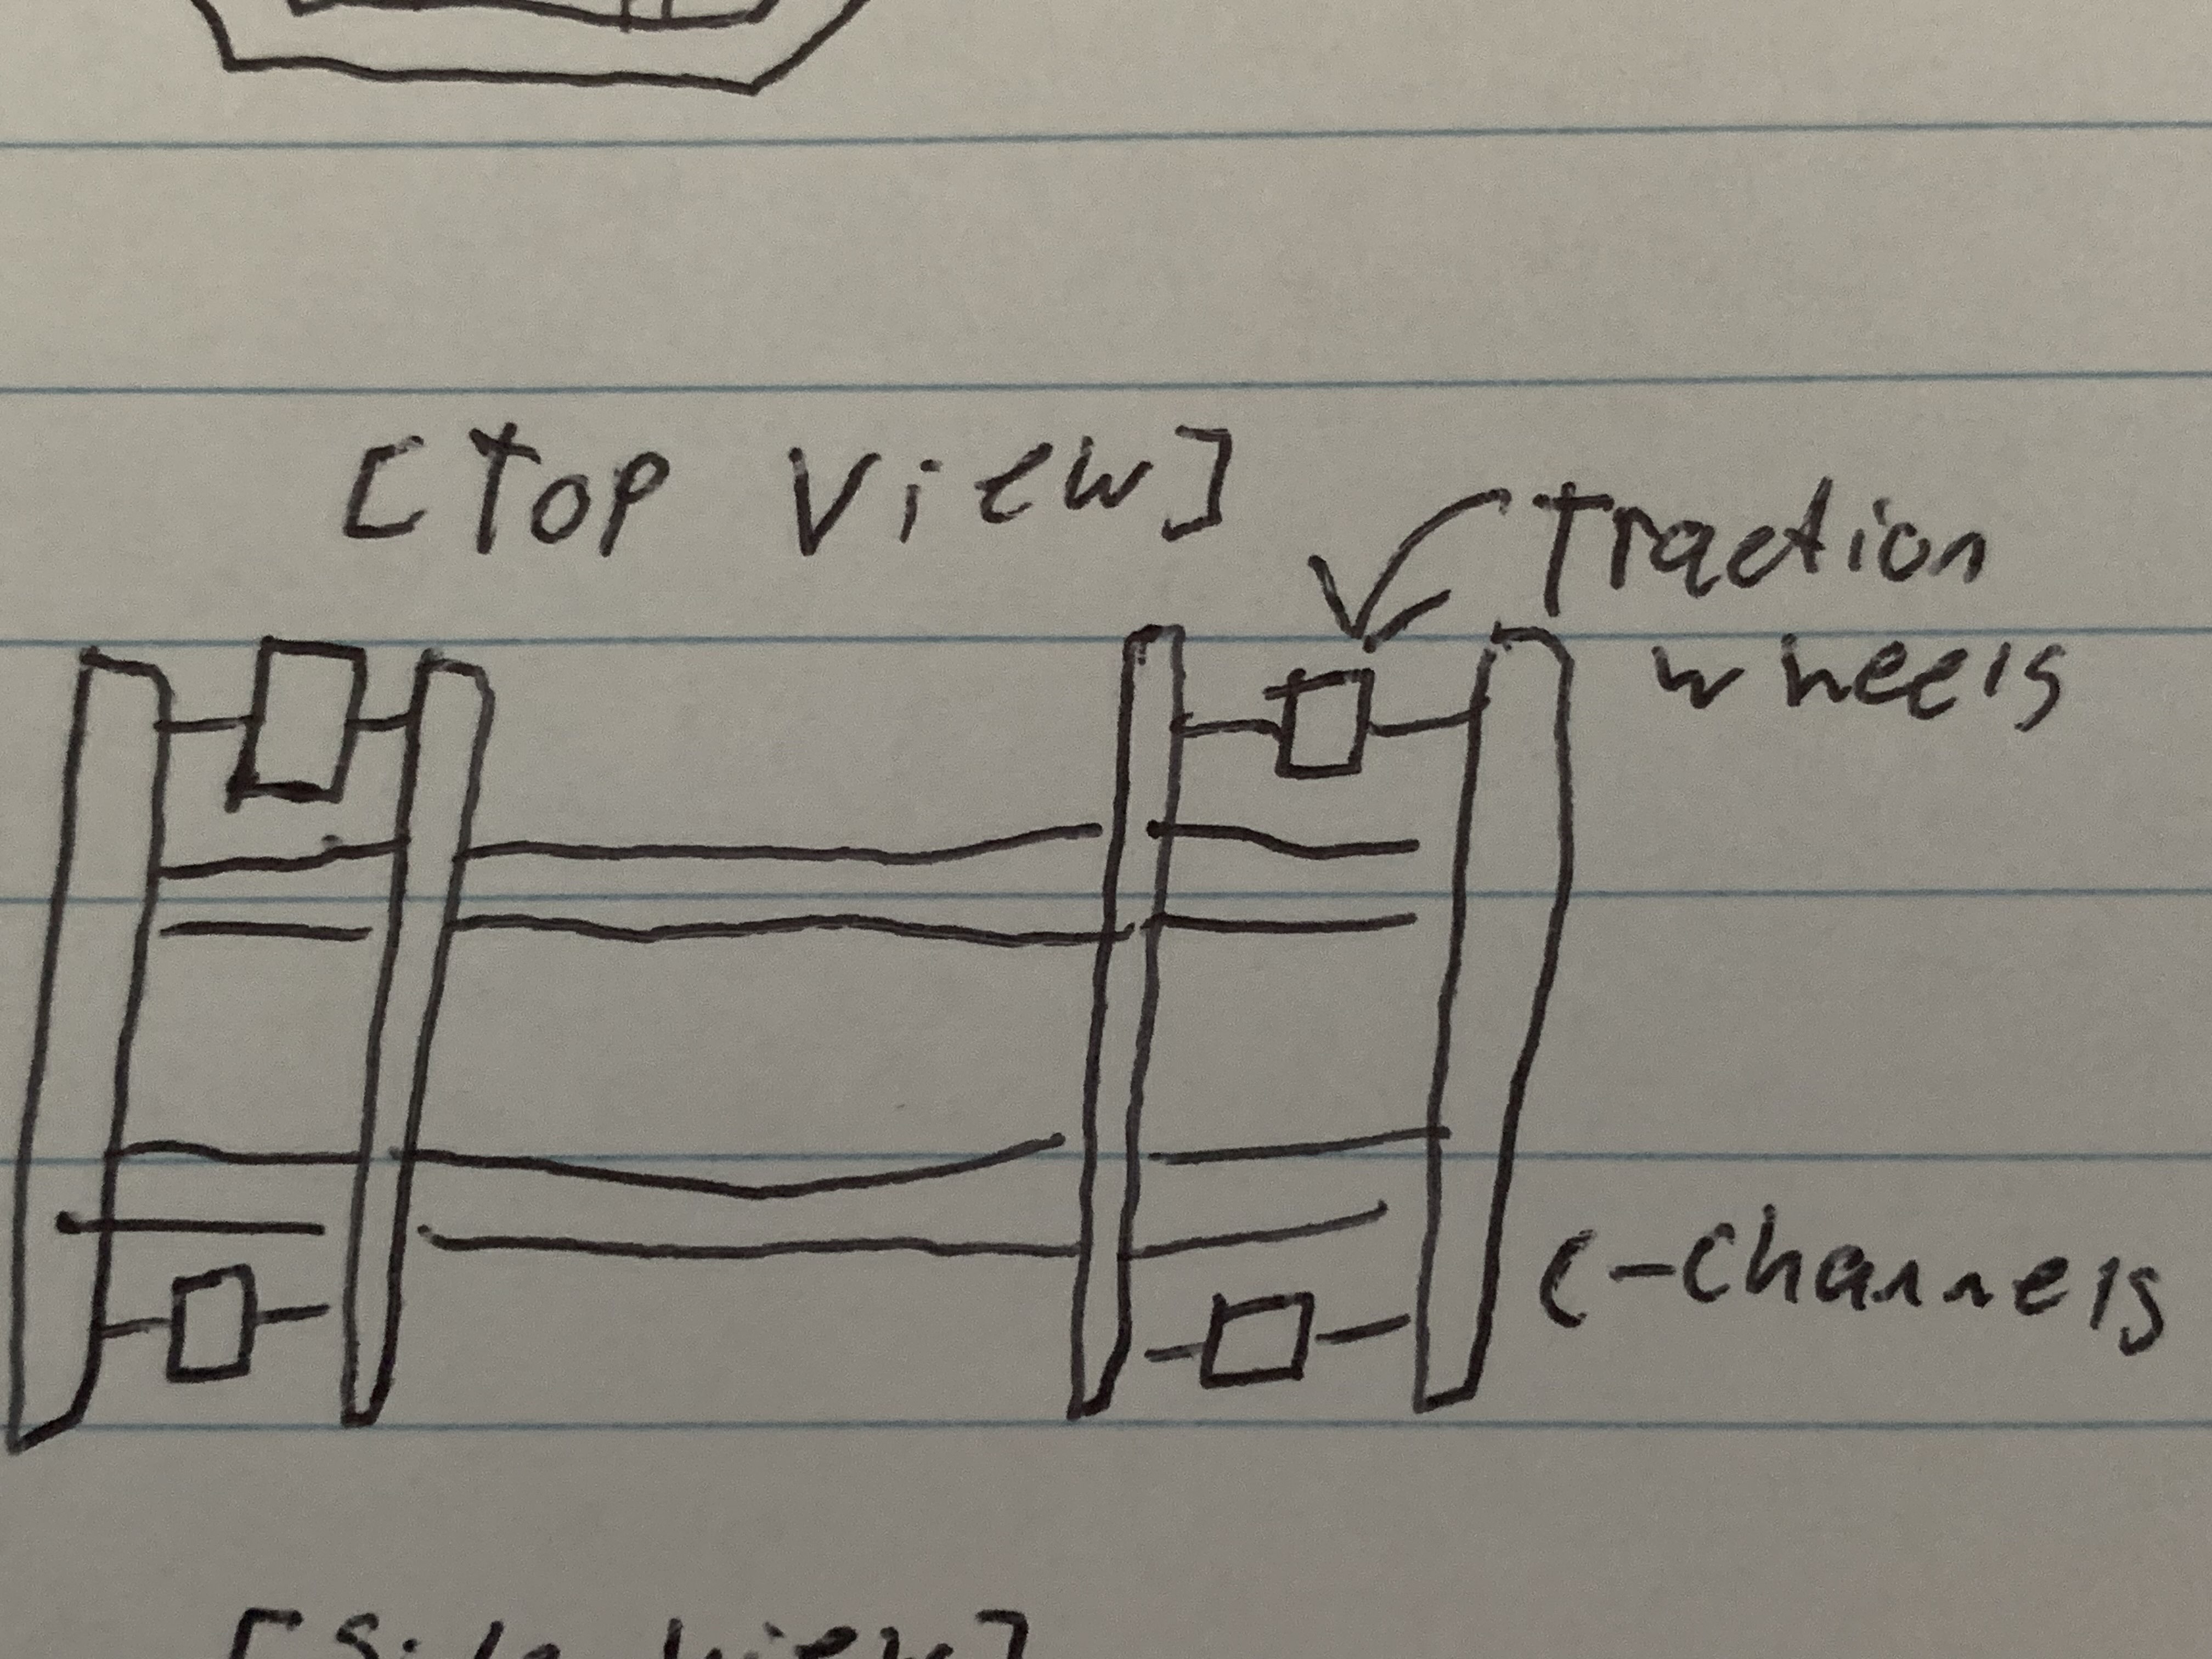 [Top View]
Traction
wheels
C-Channels
[Side View]